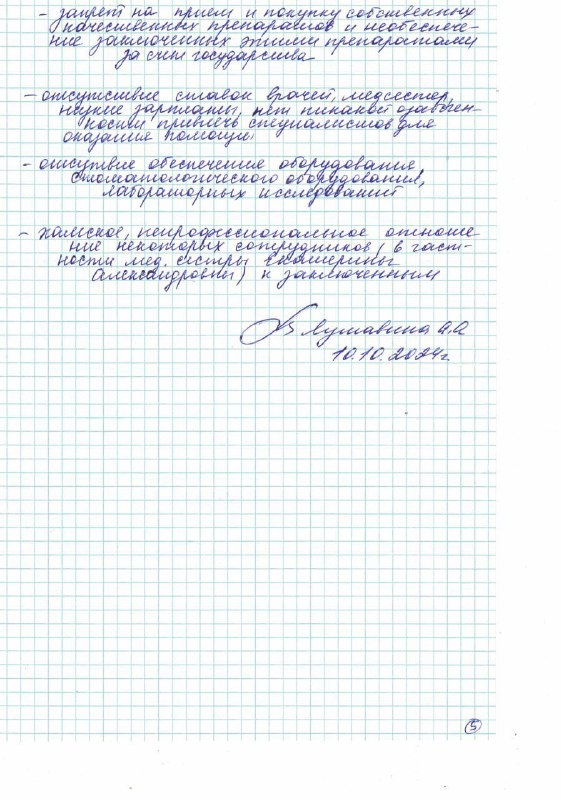 - запрет на прием и покупку собственных
качественных препаратов и необеспече-
ние заключенных этими препаратами
за счет государства
- отсутствие ставок врачей, медсестер,
низкие зарплаты, нет никакой
привлечь специалистов для
оказания помощи
- отсутвие обеспечения оборудования
стоматологического оборудования,
лабораторных исследований
- хамское, непрофессиональное отноше-
ние некоторых сотрудников (в част-
ности мед. сестры Екатерины
Александровны) к заключенным
А.А
10.10.2024г
5